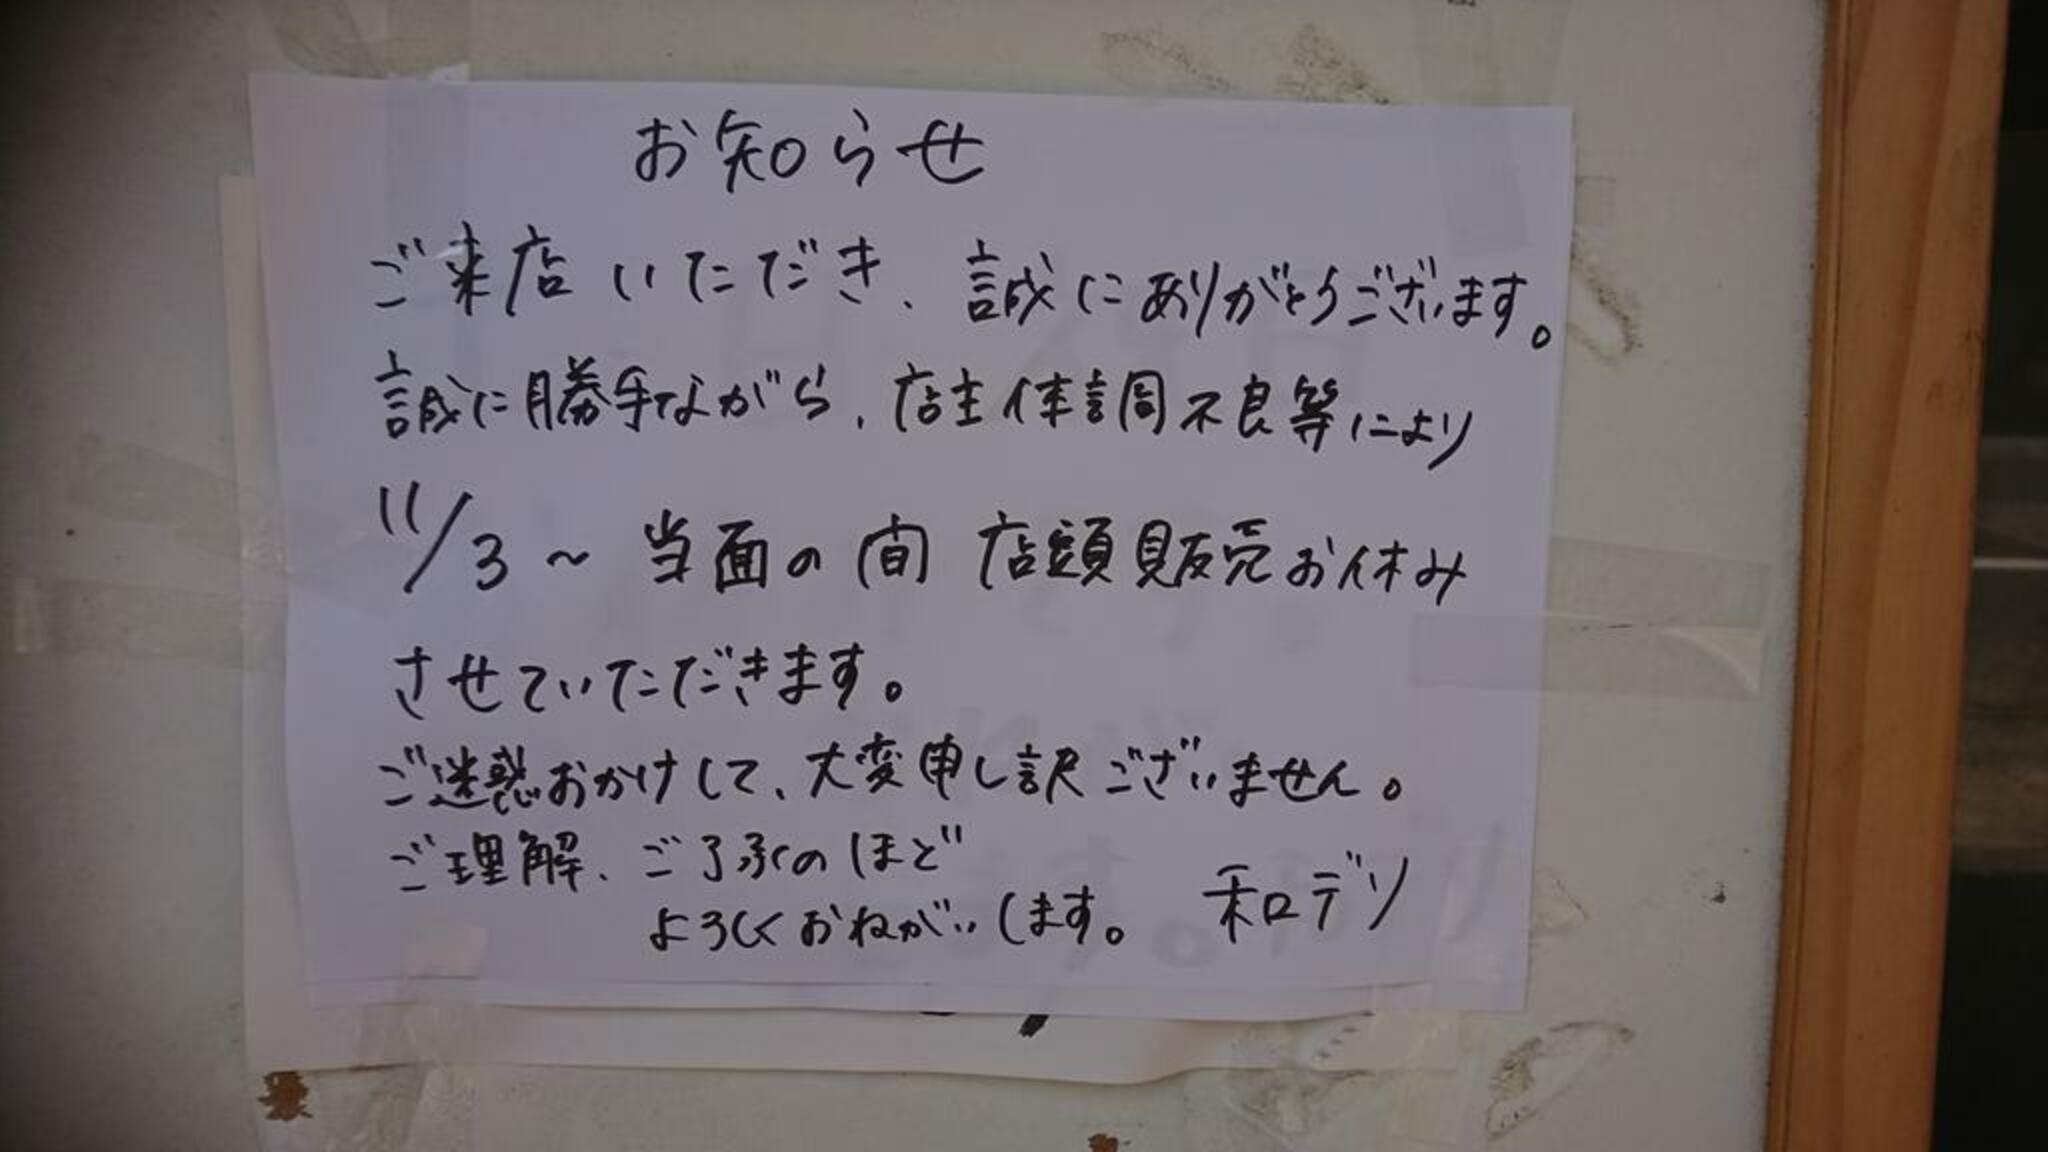 お知らせ
ご来店いただき、誠にありがとうございます。
誠に勝手ながら、店主体調不良等により
11/3～当面の間 店頭販売お休み
させていただきます。
ご迷惑おかけして、大変申し訳ございません。
ご理解、ご了承のほど
よろしくおねがいします。 和デリ